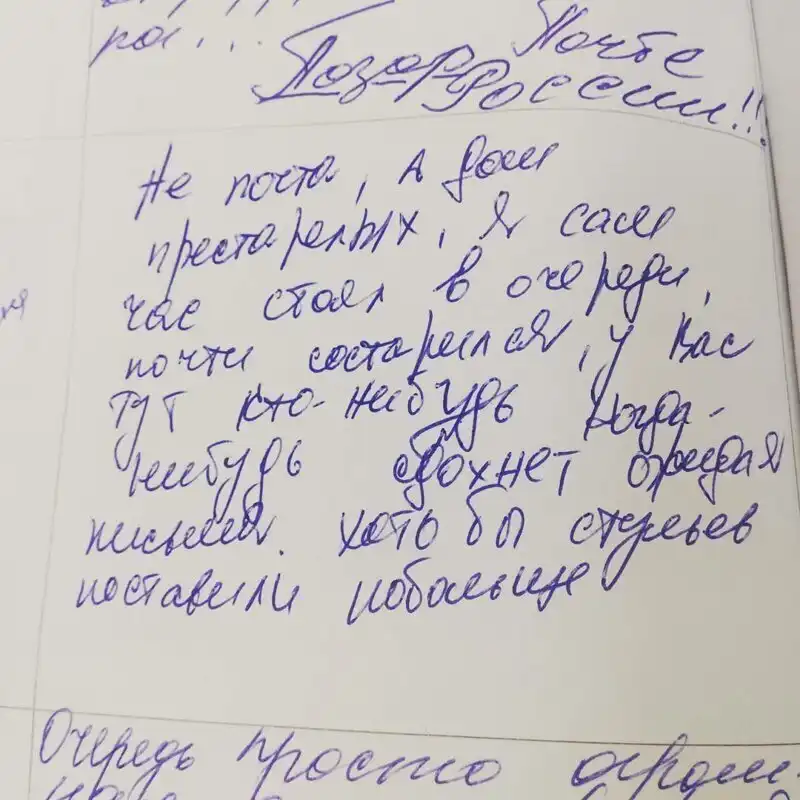 Почте
Позор России!!!
Не почта, а дом
престарелых, я сам
час стоял в очереди,
почти состарился, у вас
тут кто-нибудь когда-
нибудь сдохнет ожидая
письма. Хоть бы стульев
поставили побольше
Очередь просто огром-